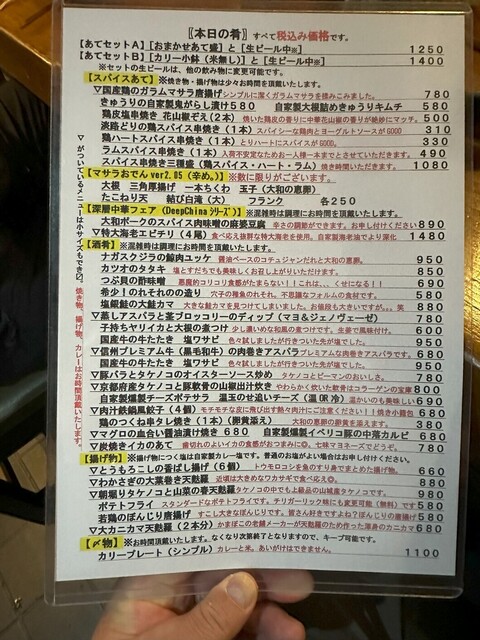 〖本日の肴〗 すべて税込み価格です。
【あてセットA】[おまかせあて盛]と[生ビール中※] 1250
【あてセットB】[カリー小鉢(米無し)]と[生ビール中※] 1400
※セットの生ビールは、他の飲み物に変更可能です。
【スパイスあて】※焼き物・揚げ物は少々お時間を頂戴いたします。
▽国産鶏のガラムマサラ唐揚げ 780
きゅうりの自家製鬼がらし漬け580 自家製大根詰めきゅうりキムチ 580
鶏皮塩串焼き 花山椒ぞえ(2本) 焼いた鶏皮の香りに中華花山椒の香りが絶妙にマッチ。 500
淡路どりの鶏スパイス串焼き(1本) スパイシーな鶏肉とヨーグルトソースがGOOD 310
鶏ハート串焼き(1本) とりハートにスパイスがGOOD 330
ラムスパイス串焼き(1本) 入荷不安定なためお一人様一本までとさせていただきます。 490
スパイス串焼き三種盛(鶏スパイス・ハート・ラム) 焼き時間いただきます。 1080
【マサラおでん ver2.05(辛め。)】※数に限りがございます。
大根 三角厚揚げ 一本ちくわ 玉子(大和の恵卵)
たこねり天 結び白滝(大) フランク 各250
【深層中華フェア(DeepChinaシリーズ)】※混雑時は調理にお時間を頂戴いたします。
大和ポークのスパイス肉味噌の麻婆豆腐 辛さの調節ができます。お申し付けください 890
▽特大海老エビチリ(4尾) 食べ応え抜群な特大海老を使用。自家製海老油でより深化 1480
【酒肴】※混雑時は調理にお時間を頂戴いたします。
ナガスクジラの鯨肉ユッケ 醤油ベースのコチュジャンだれと大和の恵卵。 950
カツオのタタキ 塩とすだちでも美味しくお召し上がりいただけます。 850
つぶ貝の酢味噌 悪魔的コリコリ食感がたまらない!!これは、、くせになる!! 690
希少!のれそれの造り 穴子の稚魚のれそれ。不思議なフォルムの食材です。 580
塩銀鮭の大鮭カマ 大きな鮭カマを見つけてしまいました。お値段も大きいですが。。。笑 880
▽蒸しアスパラと茎ブロッコリーのディップ(マヨ&ジェノヴェーゼ) 780
子持ちヤリイカと大根の煮つけ 少し濃いめな和風の煮つけです。生姜で風味付け。 600
国産牛の牛たたき 塩ワサビ 色々試しましたが行きついた先が塩でした。 950
▽信州プレミアム牛(黒毛和牛)の肉巻きアスパラ プレミアムな肉巻きアスパラです。 680
国産牛の牛たたき 塩ワサビ 色々試しましたが行きついた先が塩でした。 950
▽豚バラとタケノコのオイスターソース炒め タケノコとピーマンのおいしさ。 780
▽京都府産タケノコと豚軟骨の山椒出汁炊き やわらかく炊いた軟骨はコラーゲンの宝庫 800
自家製燻製チーズポテサラ 温玉のせ追いチーズ(温OR冷) 温かいのも美味しい 690
▽肉汁鉄鍋風餃子(4個) モチモチな皮に飛び出す熱々肉汁にご注意ください!!焼き小籠包 680
鶏のつくね串タレ焼き(1本)(卵黄添え) 大和の恵卵の黄身を添えます。 380
▽マグロの血合い醤油漬け焼き 680 自家製燻製イベリコ豚の中落カルビ 680
▽炭焼きイカのあて 歯切れのよいイカの食感がおつまみに◎。七味マヨネーズでどうぞ。 780
【揚げ物】※揚げ物につく塩は自家製カレー塩です。普通のお塩がよい場合はお申し付けください。
▽とうもろこしの香ばし揚げ(6個) トウモロコシを魚のすり身でまとめた揚げ物。 660
▽わかさぎの大葉巻き天麩羅 近頃は大きめなワカサギで食べ応え◎。 880
▽朝掘りタケノコと山菜の春天麩羅 タケノコの中でも上級品の山城産タケノコです。 980
ポテトフライ スタンダードなポテトフライです。チリガーリック味にも変更可能(無料)です 580
若鶏のぼんじり唐揚げ すこし大きなぼんじりです。皆さん好きですよね?ぼんじりの唐揚げ 580
▽大カニカマ天麩羅(2本分) かまぼこの老舗メーカーが天麩羅のため作った渾身のカニカマ 680
【〆物】※お時間頂戴いたします。なくなり次第終了となりますので、キープ可能です。
カリープレート(シンプル) カレーと米。あいがけはできません。 1100
▽がついているメニューは小サイズもできます
焼き物、揚げ物、カレーはお時間頂戴いたします。